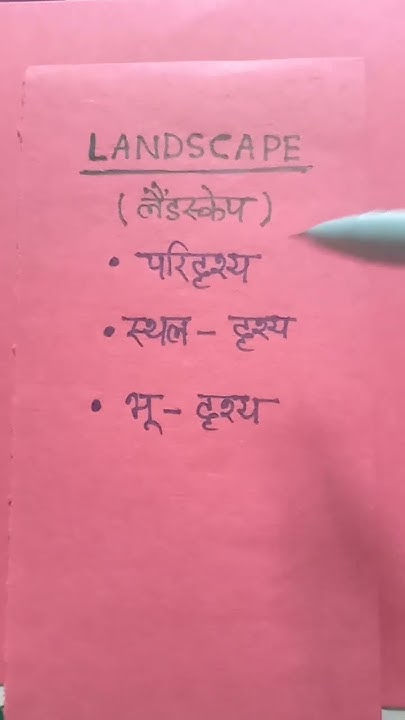 LANDSCAPE
(लैंडस्केप)
• परिदृश्य
• स्थल - दृश्य
• भू - दृश्य